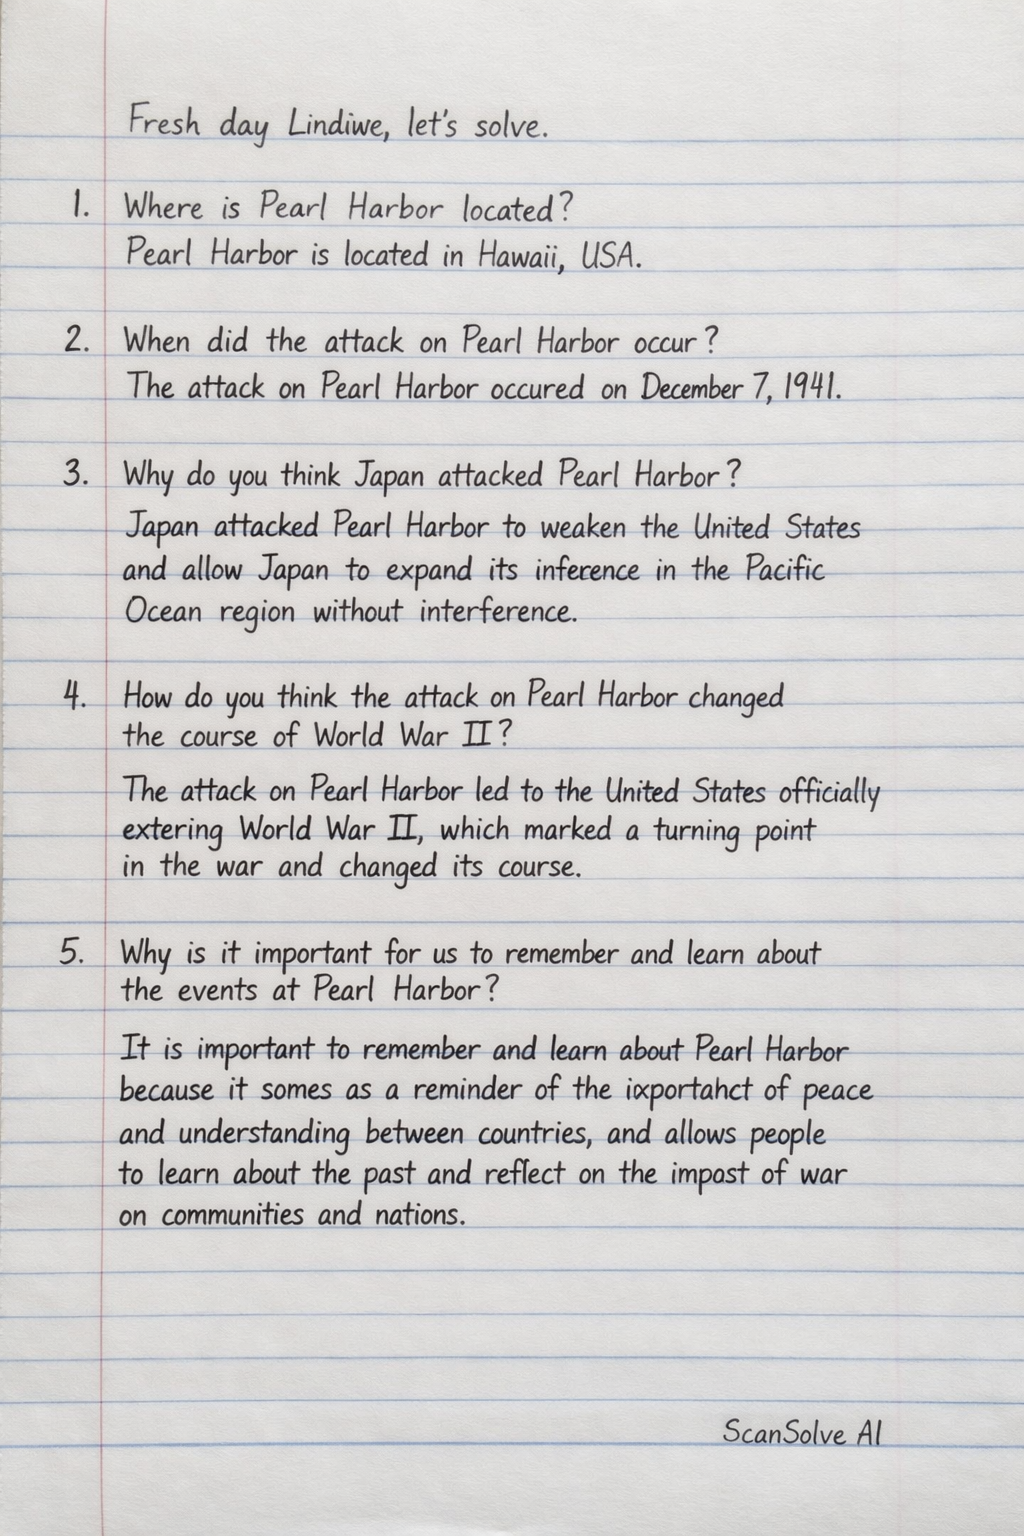 Fresh day Lindiwe, let's solve.
1. Where is Pearl Harbor located?
Pearl Harbor is located in Hawaii, USA.
2. When did the attack on Pearl Harbor occur?
The attack on Pearl Harbor occured on December 7, 1941.
3. Why do you think Japan attacked Pearl Harbor?
Japan attacked Pearl Harbor to weaken the United States
and allow Japan to expand its inference in the Pacific
Ocean region without interference.
4. How do you think the attack on Pearl Harbor changed
the course of World War II?
The attack on Pearl Harbor led to the United States officially
extering World War II, which marked a turning point
in the war and changed its course.
5. Why is it important for us to remember and learn about
the events at Pearl Harbor?
It is important to remember and learn about Pearl Harbor
because it somes as a reminder of the ixportahct of peace
and understanding between countries, and allows people
to learn about the past and reflect on the impost of war
on communities and nations.
ScanSolve AI